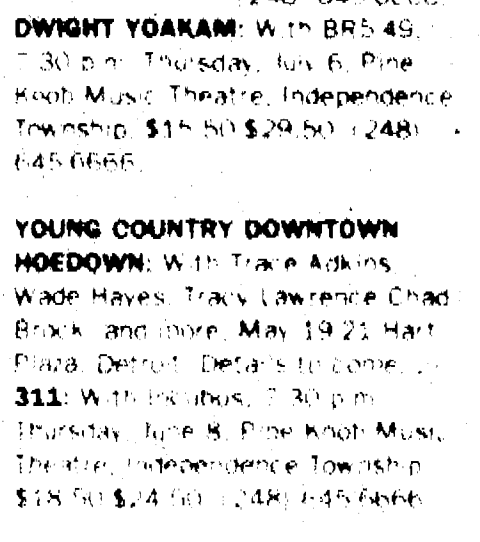 DWIGHT YOAKAM: With BR5-49,
7:30 p.m. Thursday, July 6, Pine
Knob Music Theatre, Independence
Township. $15.50-$29.50. (248)
645-6666.
YOUNG COUNTRY DOWNTOWN
HOEDOWN: With Trace Adkins,
Wade Hayes, Tracy Lawrence, Chad
Brock, and more, May 19-21, Hart
Plaza, Detroit. Details to come.
311: With Incubus, 7:30 p.m.
Thursday, June 8, Pine Knob Music
Theatre, Independence Township.
$18.50-$24.50. (248) 645-6666